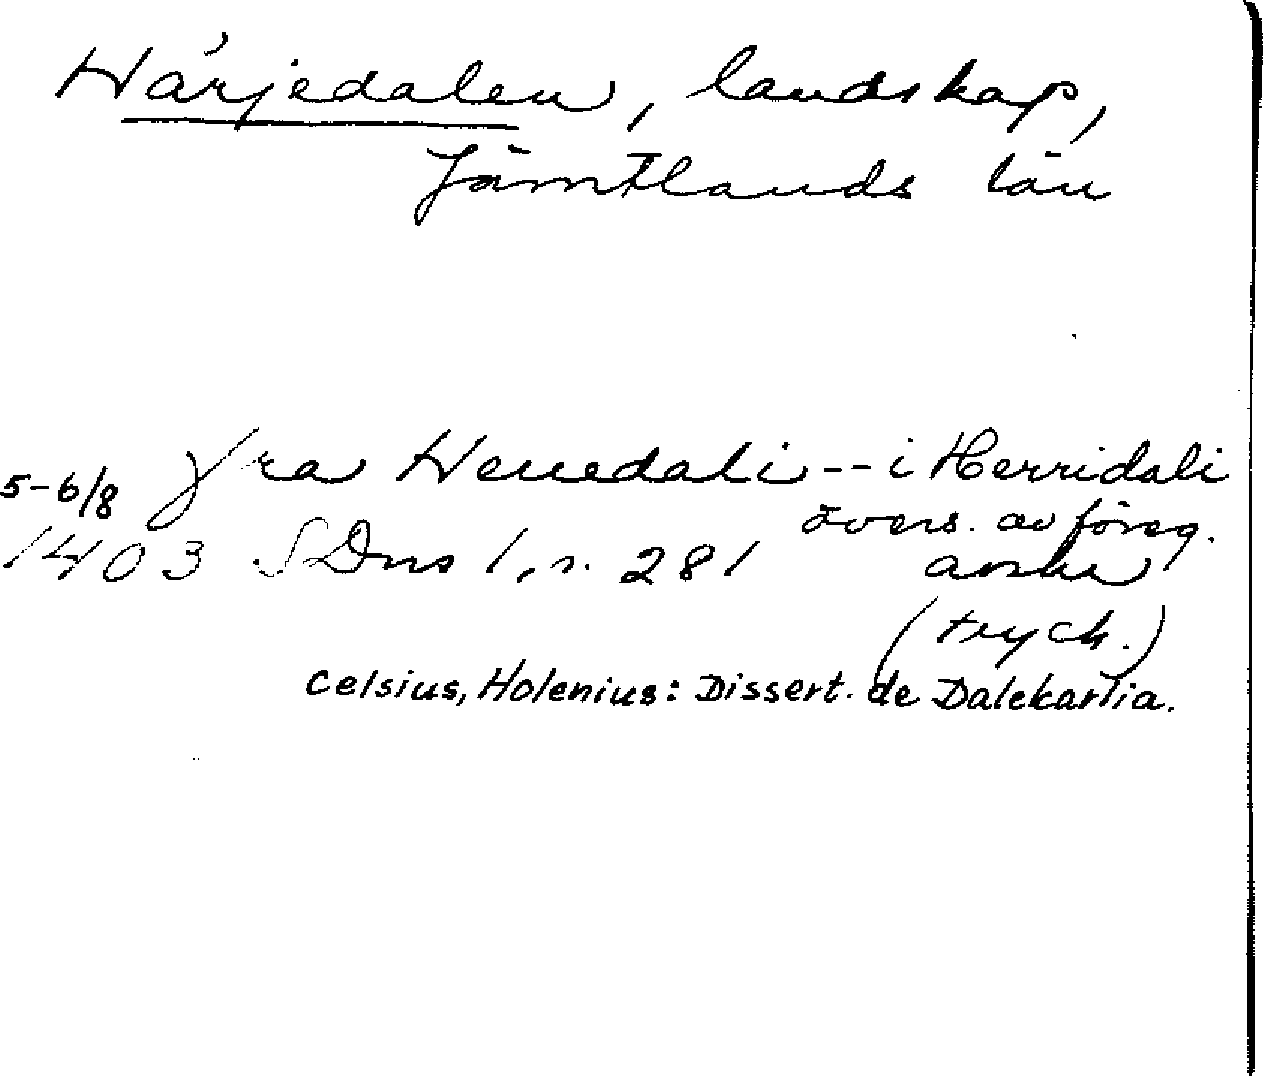 Härjedalen, landskap,
Jämtlands län
ffra Herredali -- i Herridali
5-6/8 övers. av föreg.
1403 SDns 1, s. 281 avskr
(tryck.)
Celsius, Holenius: Dissert. de Dalekarlia.